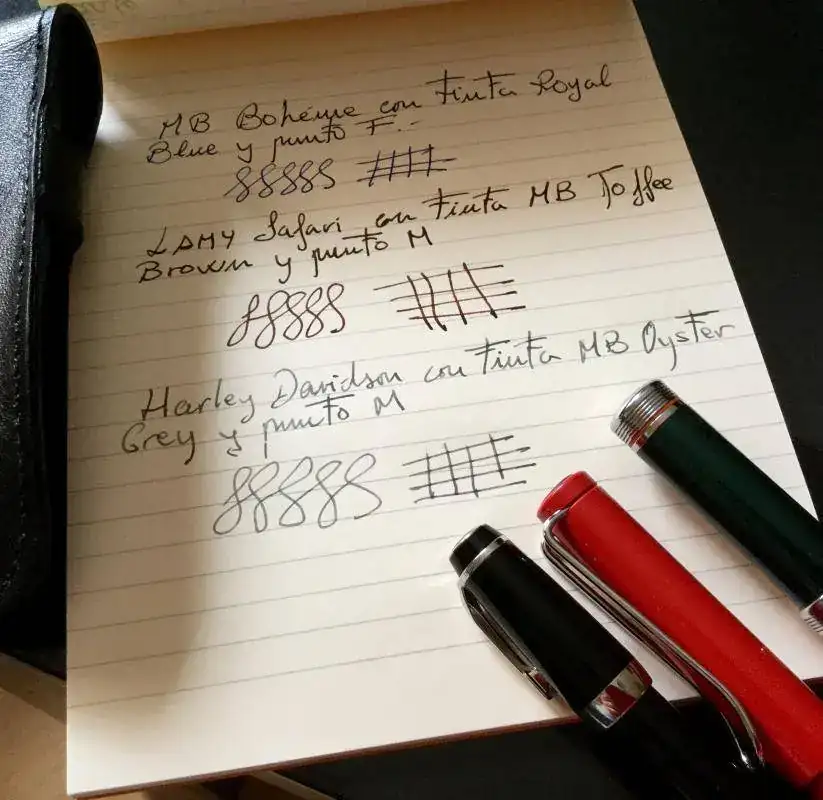 MB Bohéme con tinta Royal
Blue y punto F.-
LAMY Safari con tinta MB Toffee
Brown y punto M
Harley Davidson con tinta MB Oyster
Grey y punto M